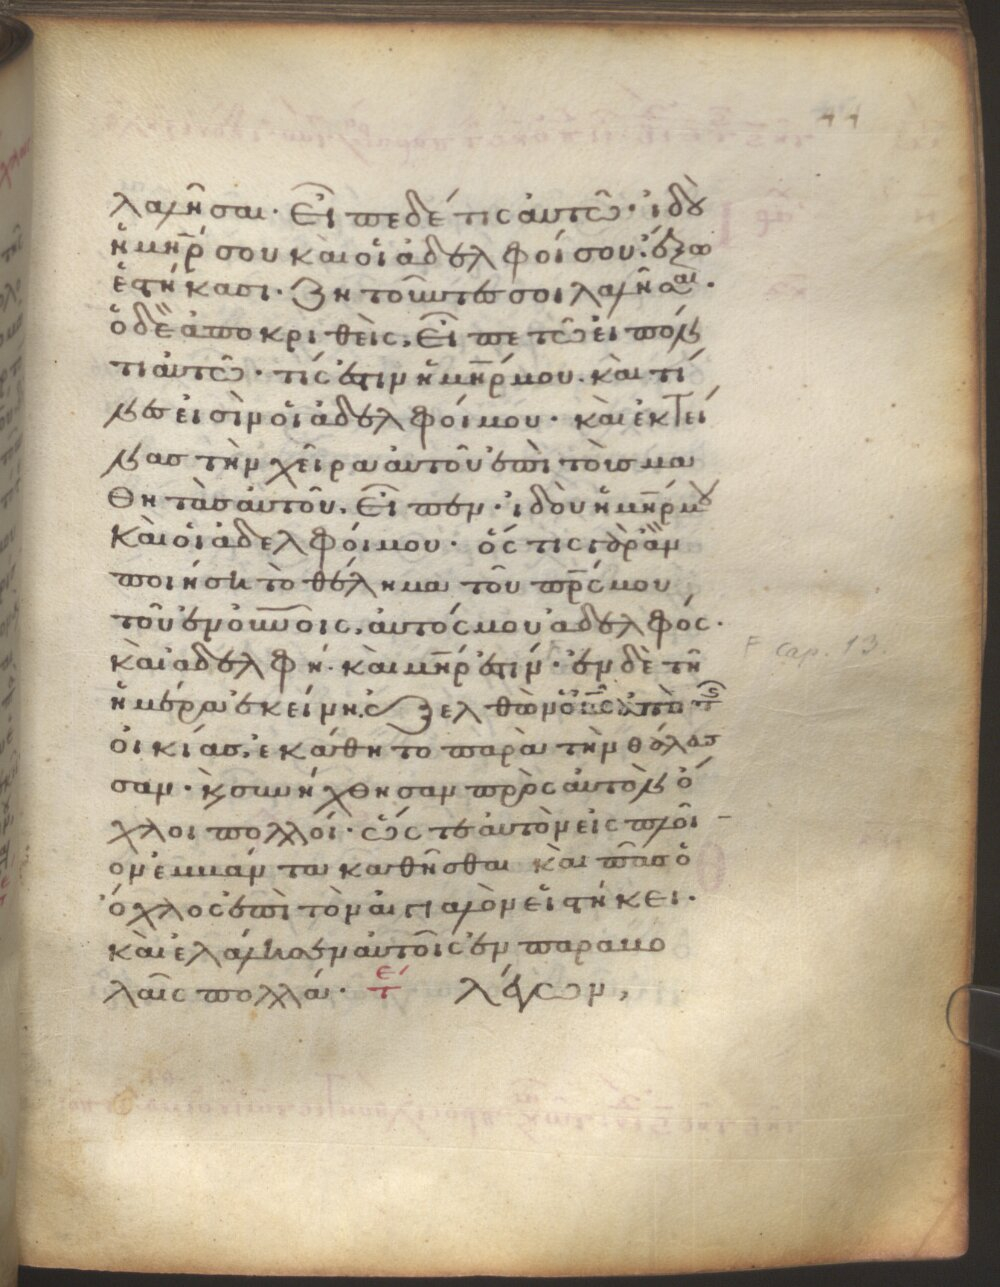 44
λαλῆσαι· Εἶπε δέ τις αὐτῶ· ἰδοὺ
ἡ μηρ σου καὶ οἱ ἀδελφοί σου· ἔξω
ἑστήκασι· Ζητοῦντες σοι λαλῆσαι·
ὁ δὲ ἀποκριθεὶς, Εἶπε τῶ εἰπόν
τι αὐτῶ· τίς ἐστιν ἡ μηρ μου. καὶ τί
νες εἰσὶν οἱ ἀδελφοί μου· καὶ ἐκτεί
νας τὴν χεῖρα αὐτοῦ ἐπὶ τοὺς μα
Θητὰς αὐτοῦ. Εἶπεν· ἰδοὺ ἡ μηρ μου
Καὶ οἱ ἀδελφοί μου· ὅς τις γὰρ ἂν
ποιήσει τὸ θέλημα τοῦ πρς μου
τοῦ ἐν οὐνοῖς, αὐτός μου ἀδελφός·
καὶ ἀδελφή· καὶ μηρ ἐστίν· ἐν δὲ τῆ
ἡμέρα ἐκείνη, ἐξελθὼν ὁ ις ἀπὸ τῆς
οἰκίας, ἐκάθητο παρὰ τὴν θάλασ
σαν· καὶ συνήχθησαν πρὸς αὐτὸν ὄ
χλοι πολλοί· ὥς τε αὐτὸν εἰς πλοῖ
ον ἐμβάντα καθῆσθαι καὶ πᾶς ὁ
ὄχλος ἐπὶ τὸν αἰγιαλὸν εἱστήκει·
καὶ ἐλάλησεν αὐτοῖς ἐν παραβο
λαῖς πολλά· λέγων,
F cap. 13.